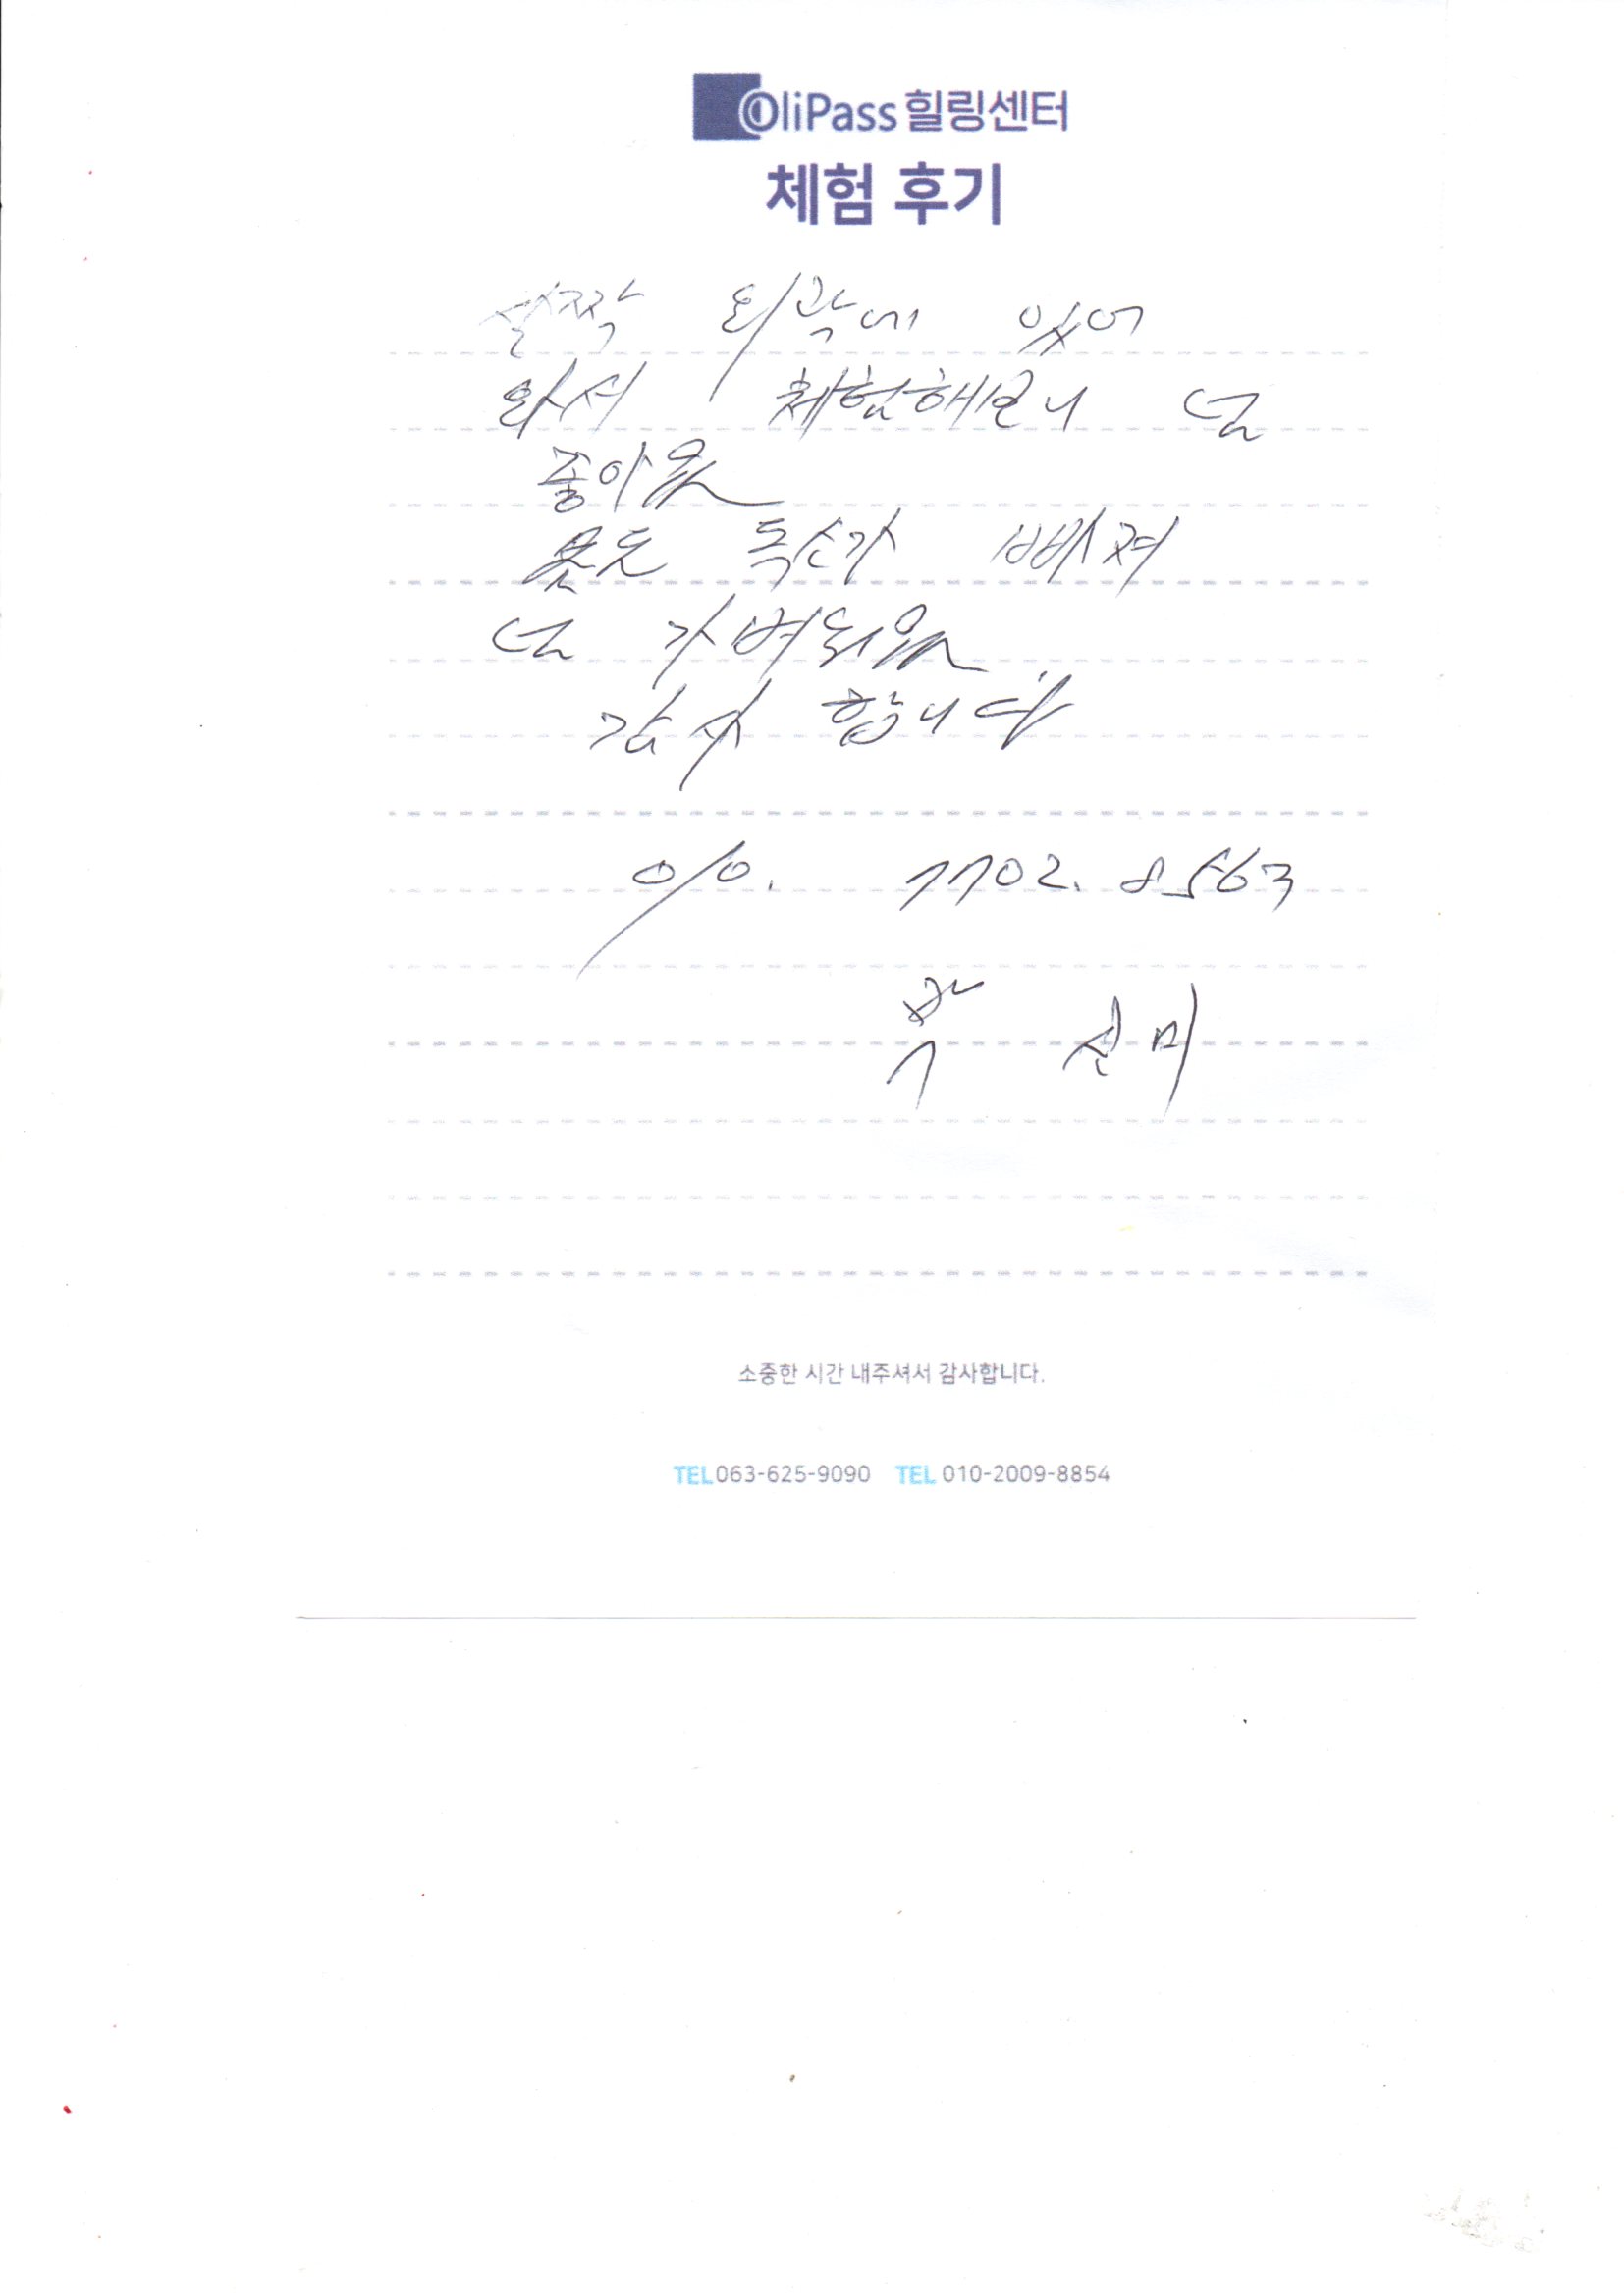 OliPass 힐링센터
체험 후기
외곽에 있어
와서 체험해보니 넘
좋아요
몸도 독소가 빠져
넘 가벼워요
감사 합니다
010. 7702. 8563
선미
소중한 시간 내주셔서 감사합니다.
TEL 063-625-9090 TEL 010-2009-8854